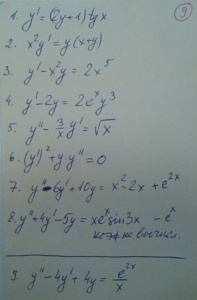 9
1. y' = (2y+1) tgx
2. x²y' = y(x+y)
3. y' - x²y = 2x⁵
4. y' - 2y = 2eˣy³
5. y'' - 3/x y' = √x
6. (y')² + y·y'' = 0
7. y'' - 6y' + 10y = x² - 2x + e²ˣ
8. y'' + 4y' - 5y = xeˣsin3x - eˣ
коэф не вычисл.
9. y'' - 4y' + 4y = e²ˣ/x